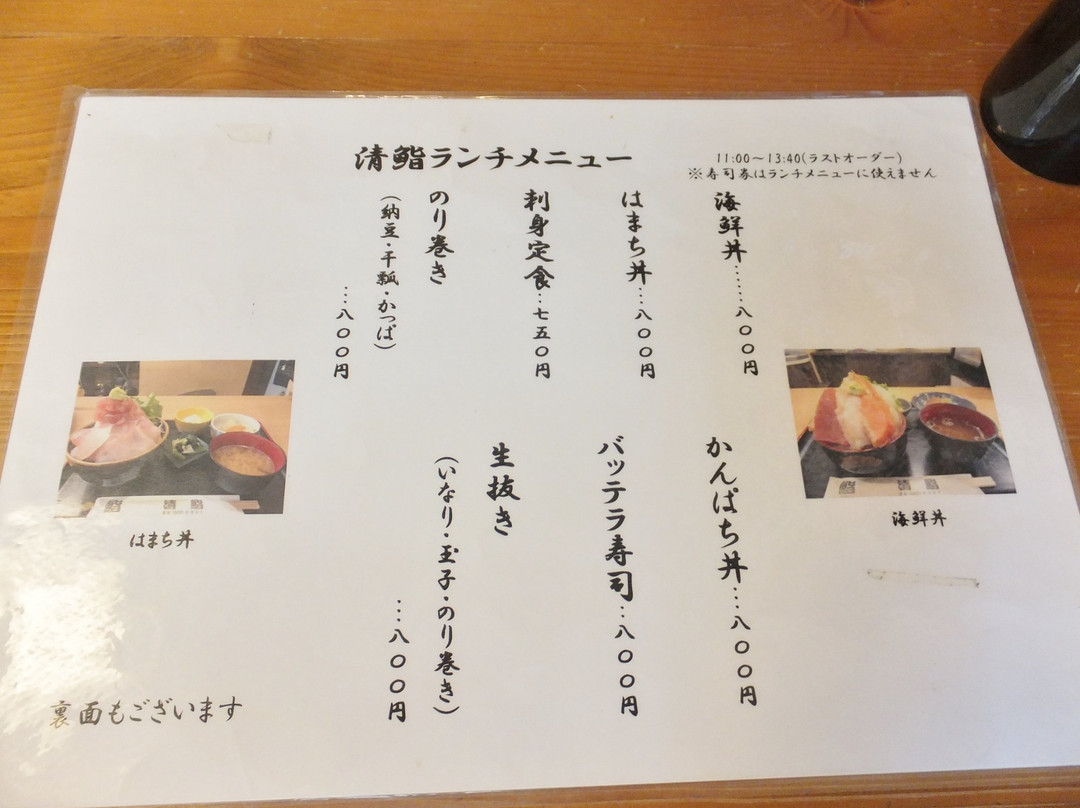 清鮨ランチメニュー
11:00～13:40(ラストオーダー)
※寿司券はランチメニューに使えません
海鮮丼……八〇〇円
はまち丼…八〇〇円
刺身定食…七五〇円
のり巻き
(納豆・干瓢・かっぱ)
…八〇〇円
かんぱち丼…八〇〇円
バッテラ寿司…八〇〇円
生抜き
(いなり・玉子・のり巻き)
…八〇〇円
海鮮丼
はまち丼
裏面もございます